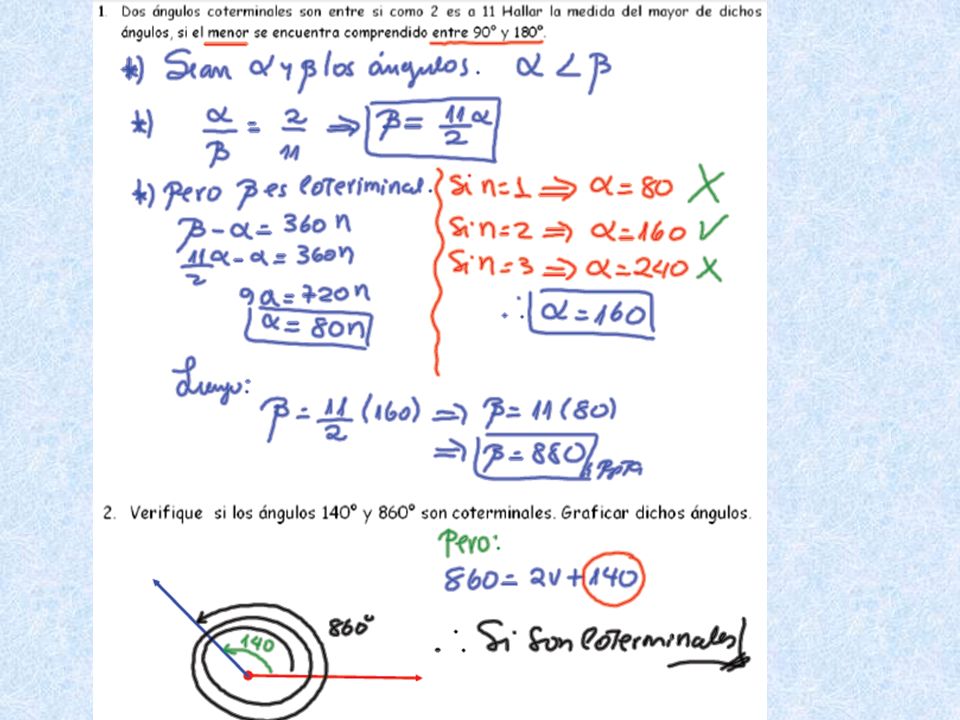 1. Dos ángulos coterminales son entre si como 2 es a 11 Hallar la medida del mayor de dichos
ángulos, si el menor se encuentra comprendido entre 90° y 180°.
*) Sean α y β los ángulos. α < β
*) α/β = 2/11 ⇒ β = 11/2 α
*) Pero β es Coteriminal.
β - α = 360 n
11/2 α - α = 360n
9α = 720n
α = 80n
Si n=1 ⇒ α = 80 X
Si n=2 ⇒ α=160 ✓
Si n=3 ⇒ α=240 X
∴ α = 160
Luego:
β = 11/2 (160) ⇒ β = 11 (80)
⇒ β = 880 // RpTa
2. Verifique si los ángulos 140° y 860° son coterminales. Graficar dichos ángulos.
Pero:
860 = 2v + 140
∴ Si Son Coterminales
860°
140